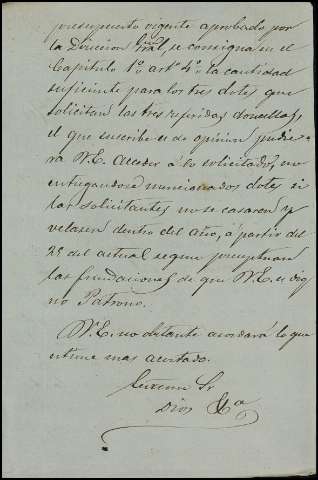 presupuesto vigente aprobado por
la Direccion Gral, se consigna en el
Capitulo 1º artº 4º la cantidad
suficiente para los tres dotes que
solicitan las tres referidas doncellas,
el que suscribe es de opinion pudie-
ra V.E. acceder á lo solicitado, no
entregandose mencionados dotes si
las solicitantes no se casaren y
velasen dentro del año, á partir del
25 del actual segun preceptuan
las fundaciones de que V.E. es dig
no Patrono.
V.E. no obstante acordará lo que
estime mas acertado.
Excmo Sr
Dios &a